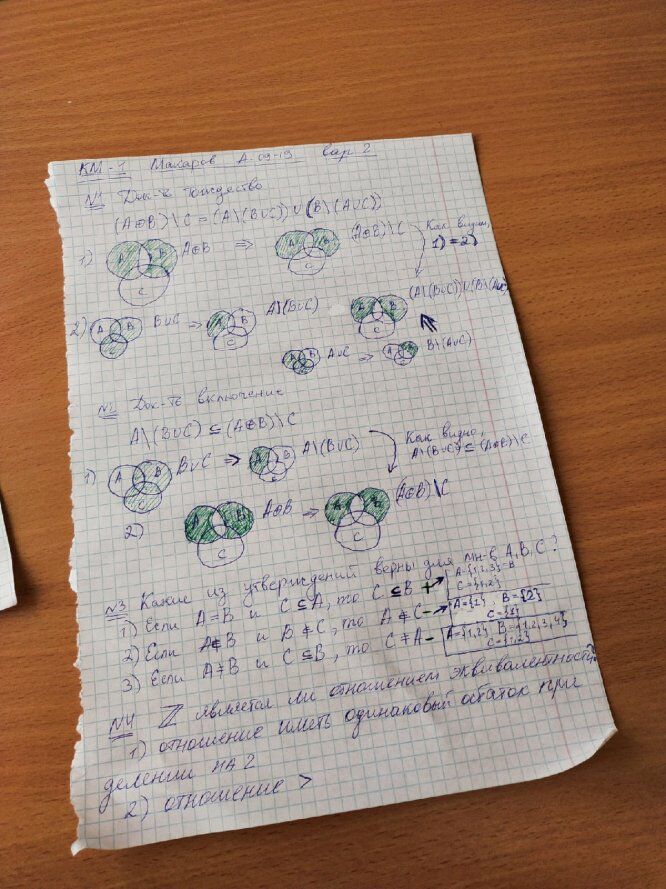 КМ-1 Макаров А-09-19 Вар 2
№1 Док-ть тождество
(A⊕B)\C = (A\(B∪C))∪(B\(A∪C))
1) A B C A⊕B ⇒ A B C (A⊕B)\C Как видим, 1)=2)
2) A B C B∪C ⇒ A B C A\(B∪C) A B C (A\(B∪C))∪(B\(A∪C))
A B C A∪C ⇒ A B C B\(A∪C)
№2 Док-ть включение
A\(B∪C) ⊆ (A⊕B)\C
1) A B C B∪C ⇒ A B C A\(B∪C) Как видно, A\(B∪C) ⊆ (A⊕B)\C
2) A B C A⊕B ⇒ A B C (A⊕B)\C
№3 Какие из утверждений верны для мн-в A, B, C?
1) Если A=B и C⊆A, то C⊆B + A={1,2,3}=B C={1,2}
2) Если A⊄B и B⊄C, то A⊄C - A={1}, B={2} C={1}
3) Если A≠B и C⊆B, то C≠A - A={1,2} B={1,2,3,4} C={1,2}
№4 ℤ является ли отношением эквивалентности?
1) отношение иметь одинаковый остаток при
делении на 2
2) отношение >